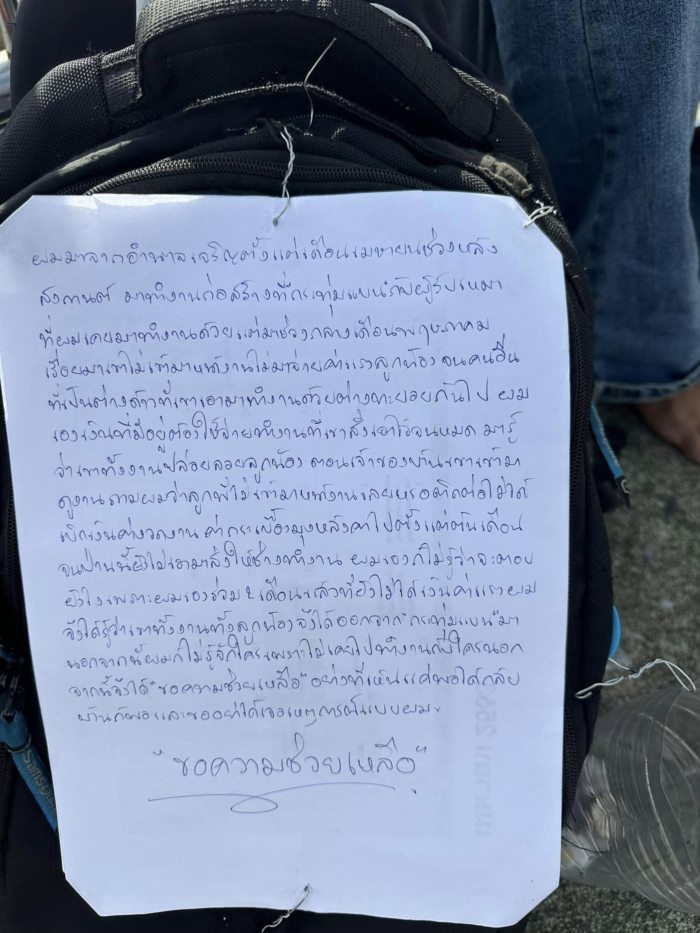 ผมมาจากอำนาจเจริญตั้งแต่เดือนเมษายนช่วงหลัง
สงกานต์ มาทำงานก่อสร้างที่"กระทุ่มแบน"กับผู้รับเหมา
ที่ผมเคยมาทำงานด้วยแต่มาช่วงกลางเดือนพฤษภาคม
เรื่อยมาเขาไม่เข้ามาหน้างานไม่มาจ่ายค่าแรงลูกน้อง จนคนอื่น
ที่เป็นต่างด้าวที่เขาเอามาทำงานด้วยต่างทะยอยกันไป ผม
เองเงินที่มีอยู่ต้องใช้จ่ายทำงานที่เขาสั่งเอาไว้จนหมด มารู้
ว่าเขาทิ้งงานปล่อยลอยลูกน้อง ตอนเจ้าของบ้านเขาเข้ามา
ดูงานถามผมว่าลูกพี่ไม่เข้ามาหน้างานเลยหรอติดต่อไม่ได้
เบิกเงินค่างวดงาน ค่ากระเบื้องมุงหลังคาไปตั้งแต่ต้นเดือน
จนป่านนี้ยังไม่เอามาสั่งให้ช่างทำงาน ผมเองก็ไม่รู้ว่าจะตอบ
ยังไงเพราะผมเองร่วม 2 เดือนแล้วที่ยังไม่ได้เงินค่าแรง ผม
จึงได้รู้ว่าเขาทิ้งงานทิ้งลูกน้องจึงได้ออกจาก"กระทุ่มแบน"มา
นอกจากนี้ผมก็ไม่รู้จักใครเพราะไม่เคยไปทำงานที่ใครนอก
จากนี้จึงได้"ขอความช่วยเหลือ" อย่างที่เห็นแค่พอได้กลับ
บ้านก็พอและขออย่าได้เจอเหตุการณ์แบบผม
"ขอความช่วยเหลือ"